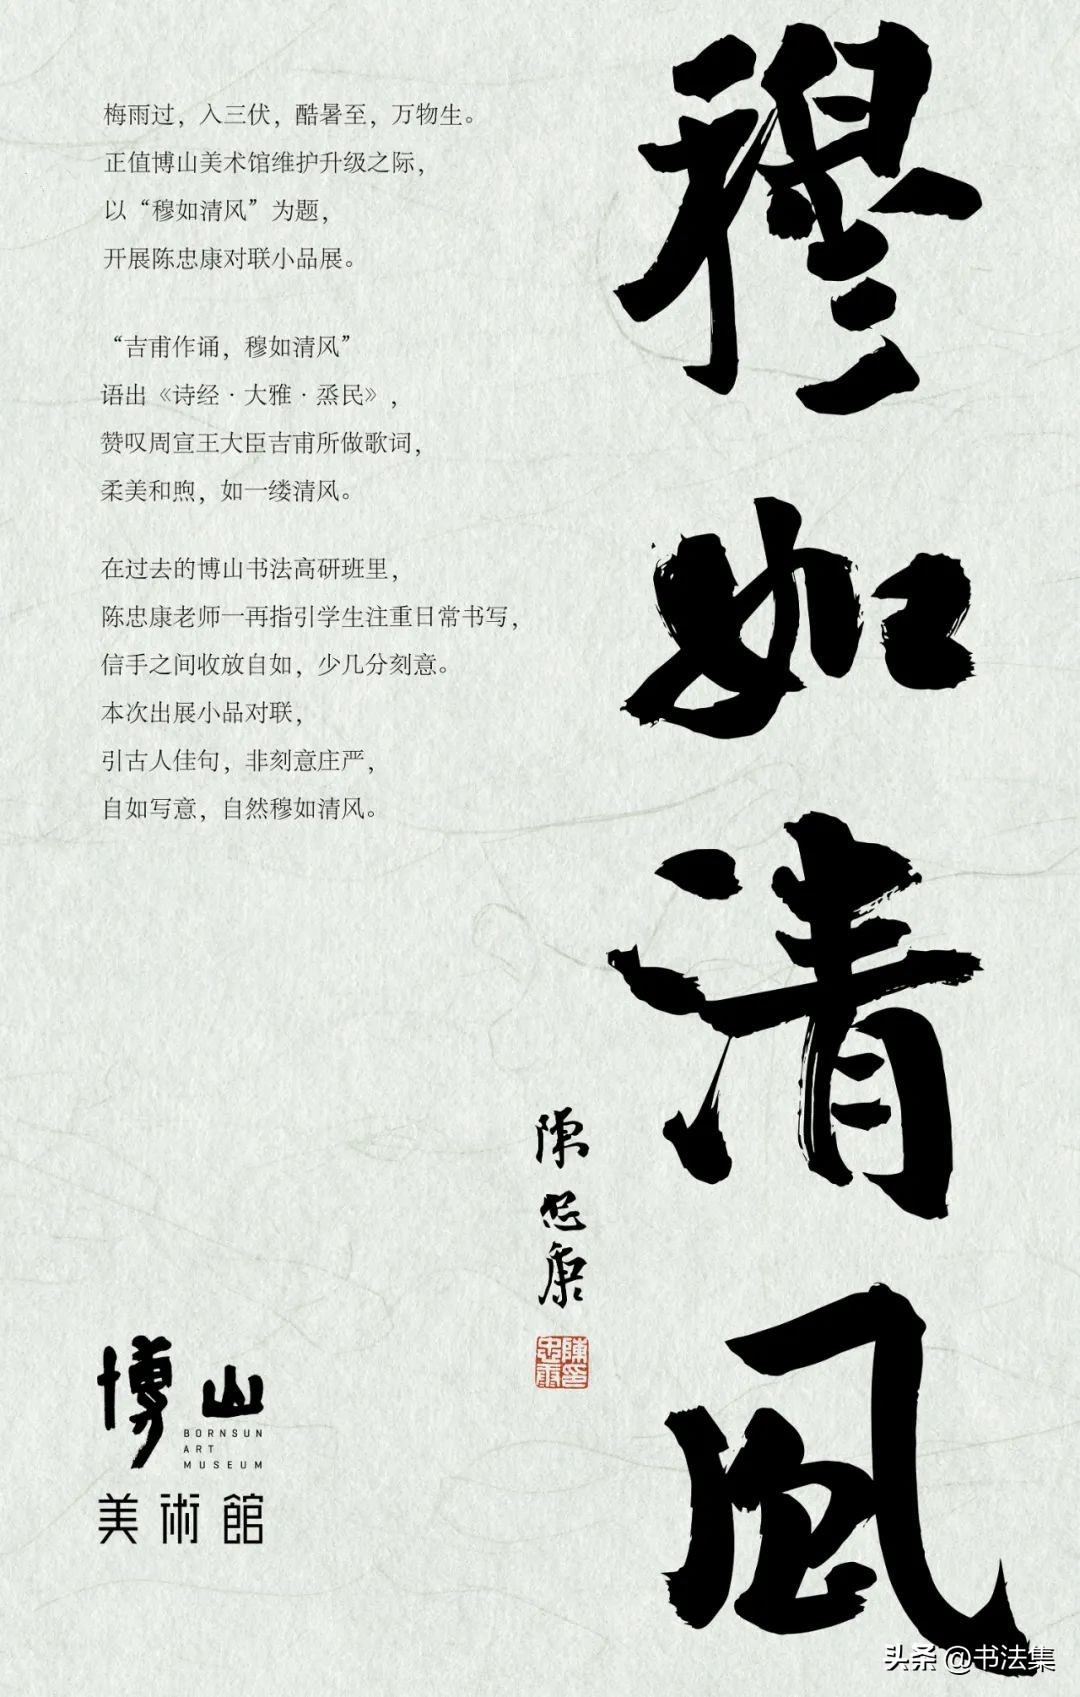 穆如清风
陈忠康
陳忠康印
梅雨过，入三伏，酷暑至，万物生。
正值博山美术馆维护升级之际，
以“穆如清风”为题，
开展陈忠康对联小品展。
“吉甫作诵，穆如清风”
语出《诗经·大雅·烝民》，
赞叹周宣王大臣吉甫所做歌词，
柔美和煦，如一缕清风。
在过去的博山书法高研班里，
陈忠康老师一再指引学生注重日常书写，
信手之间收放自如，少几分刻意。
本次出展小品对联，
引古人佳句，非刻意庄严，
自如写意，自然穆如清风。
博山
BORNSUN
ART
MUSEUM
美術館
头条 @书法集